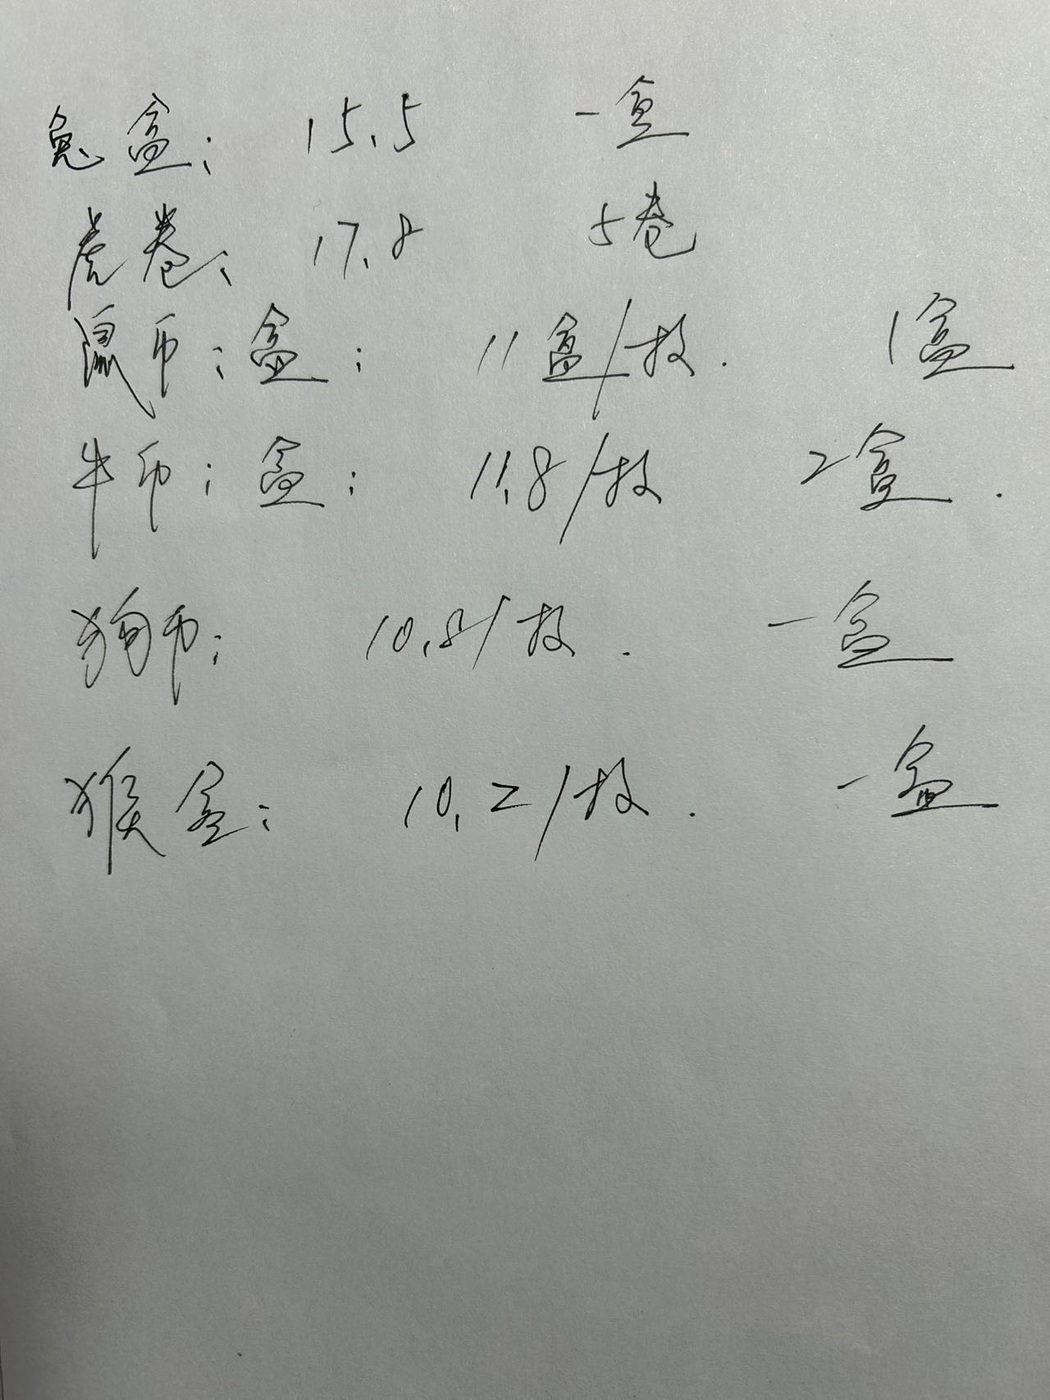 兔盒: 15.5 一盒
虎卷: 17.8 5卷
鼠币:盒: 11盒/枚. 1盒
牛币:盒: 11.8/枚 2盒.
狗币: 10.8/枚. 一盒
猴盒: 10.2/枚. 一盒